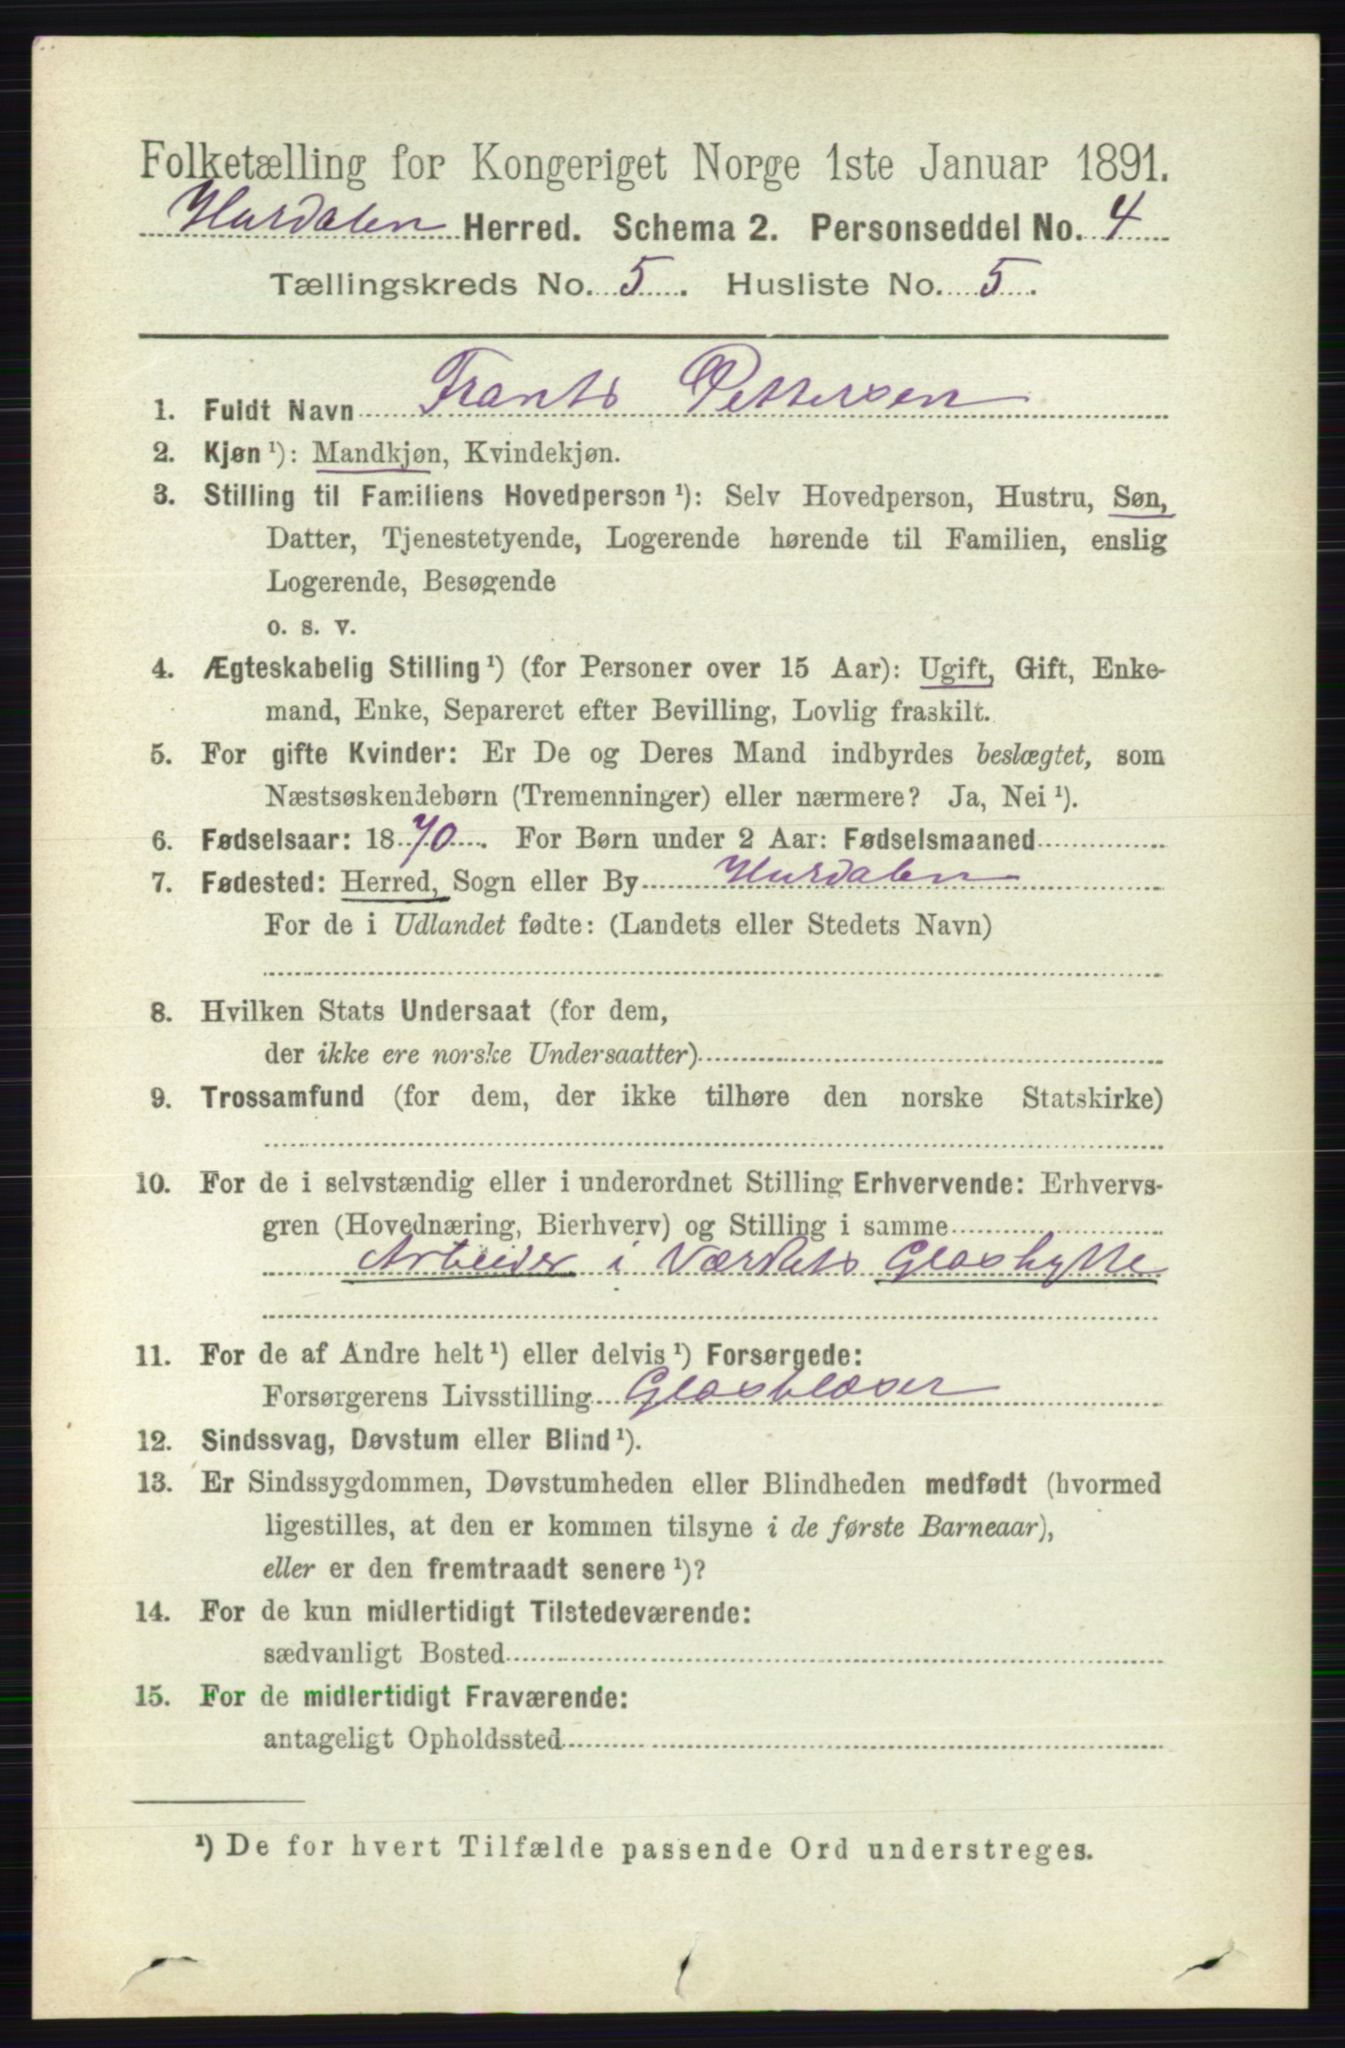 Folketælling for Kongeriget Norge 1ste Januar 1891.
Hurdalen Herred. Schema 2. Personseddel No. 4
Tællingskreds No. 5. Husliste No. 5.
1. Fuldt Navn Frants Pettersen
2. Kjøn ¹): Mandkjøn, Kvindekjøn.
3. Stilling til Familiens Hovedperson ¹): Selv Hovedperson, Hustru, Søn,
Datter, Tjenestetyende, Logerende hørende til Familien, enslig
Logerende, Besøgende
o. s. v.
4. Ægteskabelig Stilling ¹) (for Personer over 15 Aar): Ugift, Gift, Enke-
mand, Enke, Separeret efter Bevilling, Lovlig fraskilt.
5. For gifte Kvinder: Er De og Deres Mand indbyrdes beslægtet, som
Næstsøskendebørn (Tremenninger) eller nærmere? Ja, Nei ¹).
6. Fødselsaar: 1870. For Børn under 2 Aar: Fødselsmaaned
7. Fødested: Herred, Sogn eller By Hurdalen
For de i Udlandet fødte: (Landets eller Stedets Navn)
8. Hvilken Stats Undersaat (for dem,
der ikke ere norske Undersaatter)
9. Trossamfund (for dem, der ikke tilhøre den norske Statskirke)
10. For de i selvstændig eller i underordnet Stilling Erhvervende: Erhvervs-
gren (Hovednæring, Bierhverv) og Stilling i samme
Arbeider i Værkets Glashytte
11. For de af Andre helt ¹) eller delvis ¹) Forsørgede:
Forsørgerens Livsstilling Glasblæser
12. Sindssvag, Døvstum eller Blind ¹).
13. Er Sindssygdommen, Døvstumheden eller Blindheden medfødt (hvormed
ligestilles, at den er kommen tilsyne i de første Barneaar),
eller er den fremtraadt senere ¹)?
14. For de kun midlertidigt Tilstedeværende:
sædvanligt Bosted
15. For de midlertidigt Fraværende:
antageligt Opholdssted
¹) De for hvert Tilfælde passende Ord understreges.